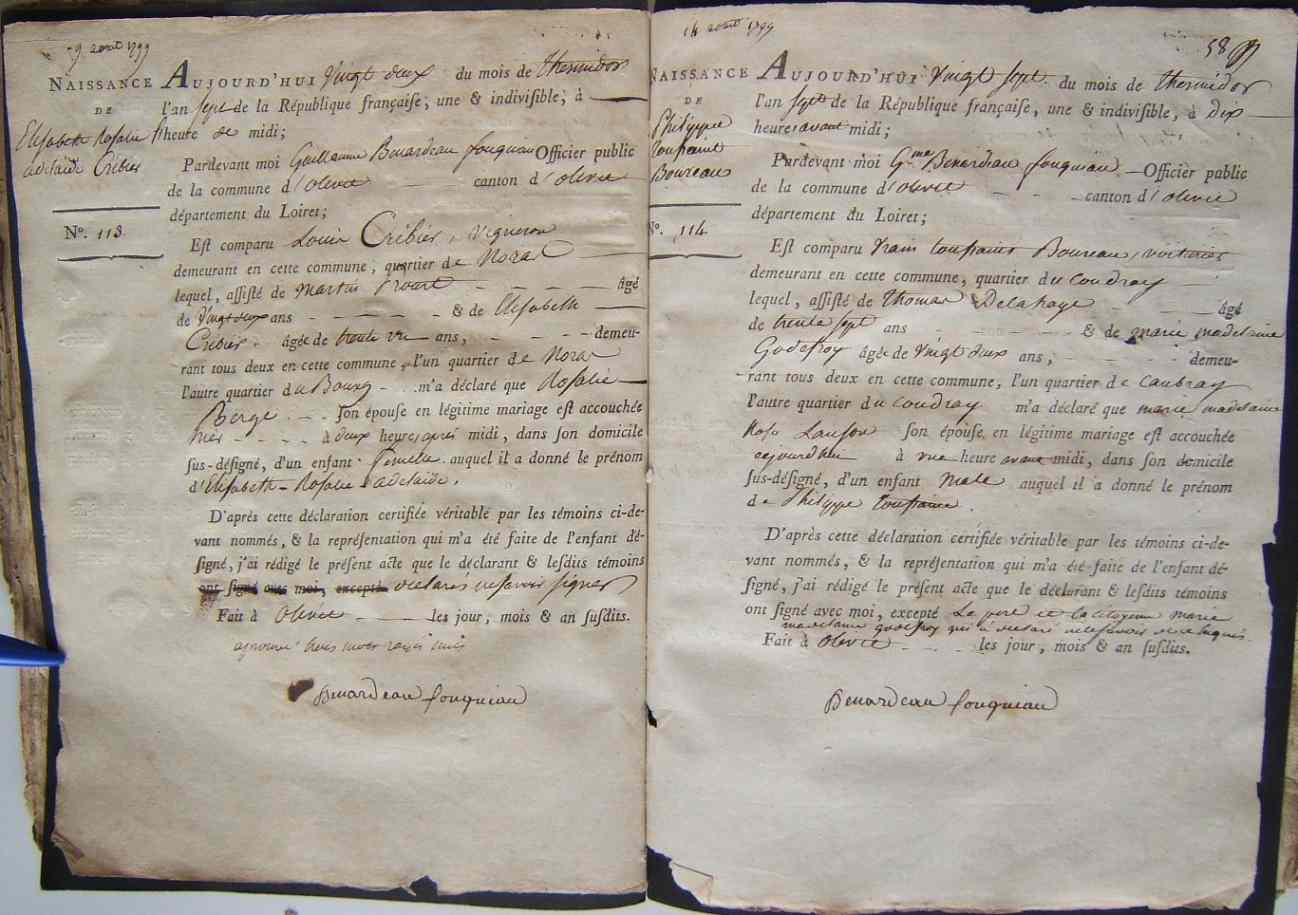 9 aout 1799
NAISSANCE
DE
Elisabeth Rosalie
adelaide Cribier
N°. 113.
AUJOURD'HUI Vingt deux du mois de thermidor
l'an sept de la République françaiſe, une & indiviſible, à
heure de midi;
Pardevant moi Guillaume Benardeau fouquiau Officier public
de la commune d'olivet canton d'olivet
département du Loiret;
Eſt comparu Louis Cribier, Vigneron
demeurant en cette commune, quartier de
lequel, aſſiſté de martin âgé
de Vingt deux ans & de Elisabeth
Cribier. âgée de trente un ans, demeu-
rant tous deux en cette commune, l'un quartier de
l'autre quartier du Bourg m'a déclaré que Rosalie
Berge ſon épouſe en légitime mariage eſt accouchée
hier à deux heures après midi, dans ſon domicile
ſus-déſigné, d'un enfant femelle auquel il a donné le prénom
d'Elisabeth - Rosalie - adelaide.
D'après cette déclaration certifiée véritable par les témoins ci-de-
vant nommés, & la repréſentation qui m'a été faite de l'enfant dé-
ſigné, j'ai rédigé le préſent acte que le déclarant & leſdits témoins
ont ſigné avec moi, excepté declaré ne savoir signer
Fait à Olivet les jour, mois & an ſuſdits.
Benardeau fouquiau
14 aout 1799
58
NAISSANCE
DE
Philippe
toussaint
Boureau
N°. 114.
AUJOURD'HUI Vingt sept du mois de thermidor
l'an sept de la République françaiſe, une & indiviſible, à dix
heures avant midi;
Pardevant moi Gme Benardeau fouquiau Officier public
de la commune d'olivet canton d'olivet
département du Loiret;
Eſt comparu Vrain toussaint Boureau, voiturier
demeurant en cette commune, quartier du coudray
lequel, aſſiſté de Thomas Delahaye âgé
de trente sept ans & de marie madelaine
Godefroy âgée de Vingt deux ans, demeu-
rant tous deux en cette commune, l'un quartier de caubray
l'autre quartier du coudray m'a déclaré que marie madelaine
Rose ſon épouſe en légitime mariage eſt accouchée
aujourdhui à une heure avant midi, dans ſon domicile
ſus-déſigné, d'un enfant male auquel il a donné le prénom
de Philippe toussaint.
D'après cette déclaration certifiée véritable par les témoins ci-de-
vant nommés, & la repréſentation qui m'a été faite de l'enfant dé-
ſigné, j'ai rédigé le préſent acte que le déclarant & leſdits témoins
ont ſigné avec moi, excepté Le pere et la citoyenne marie
madelaine godefroy qui a declaré ne savoir
Fait à olivet les jour, mois & an ſuſdits.
Benardeau fouquiau